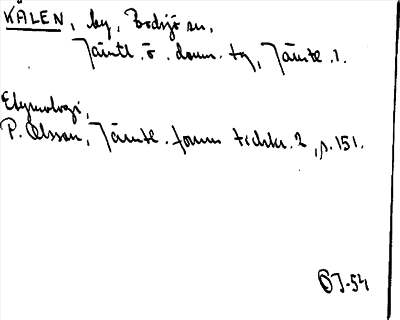 KÅLEN, by, Bodsjö sn,
Jämtl. ö. doms. tg, Jämtl. l.
Etymologi,
P. Olsson, Jämtl. fornm tidskr. 2, s. 151.
ÖJ-54